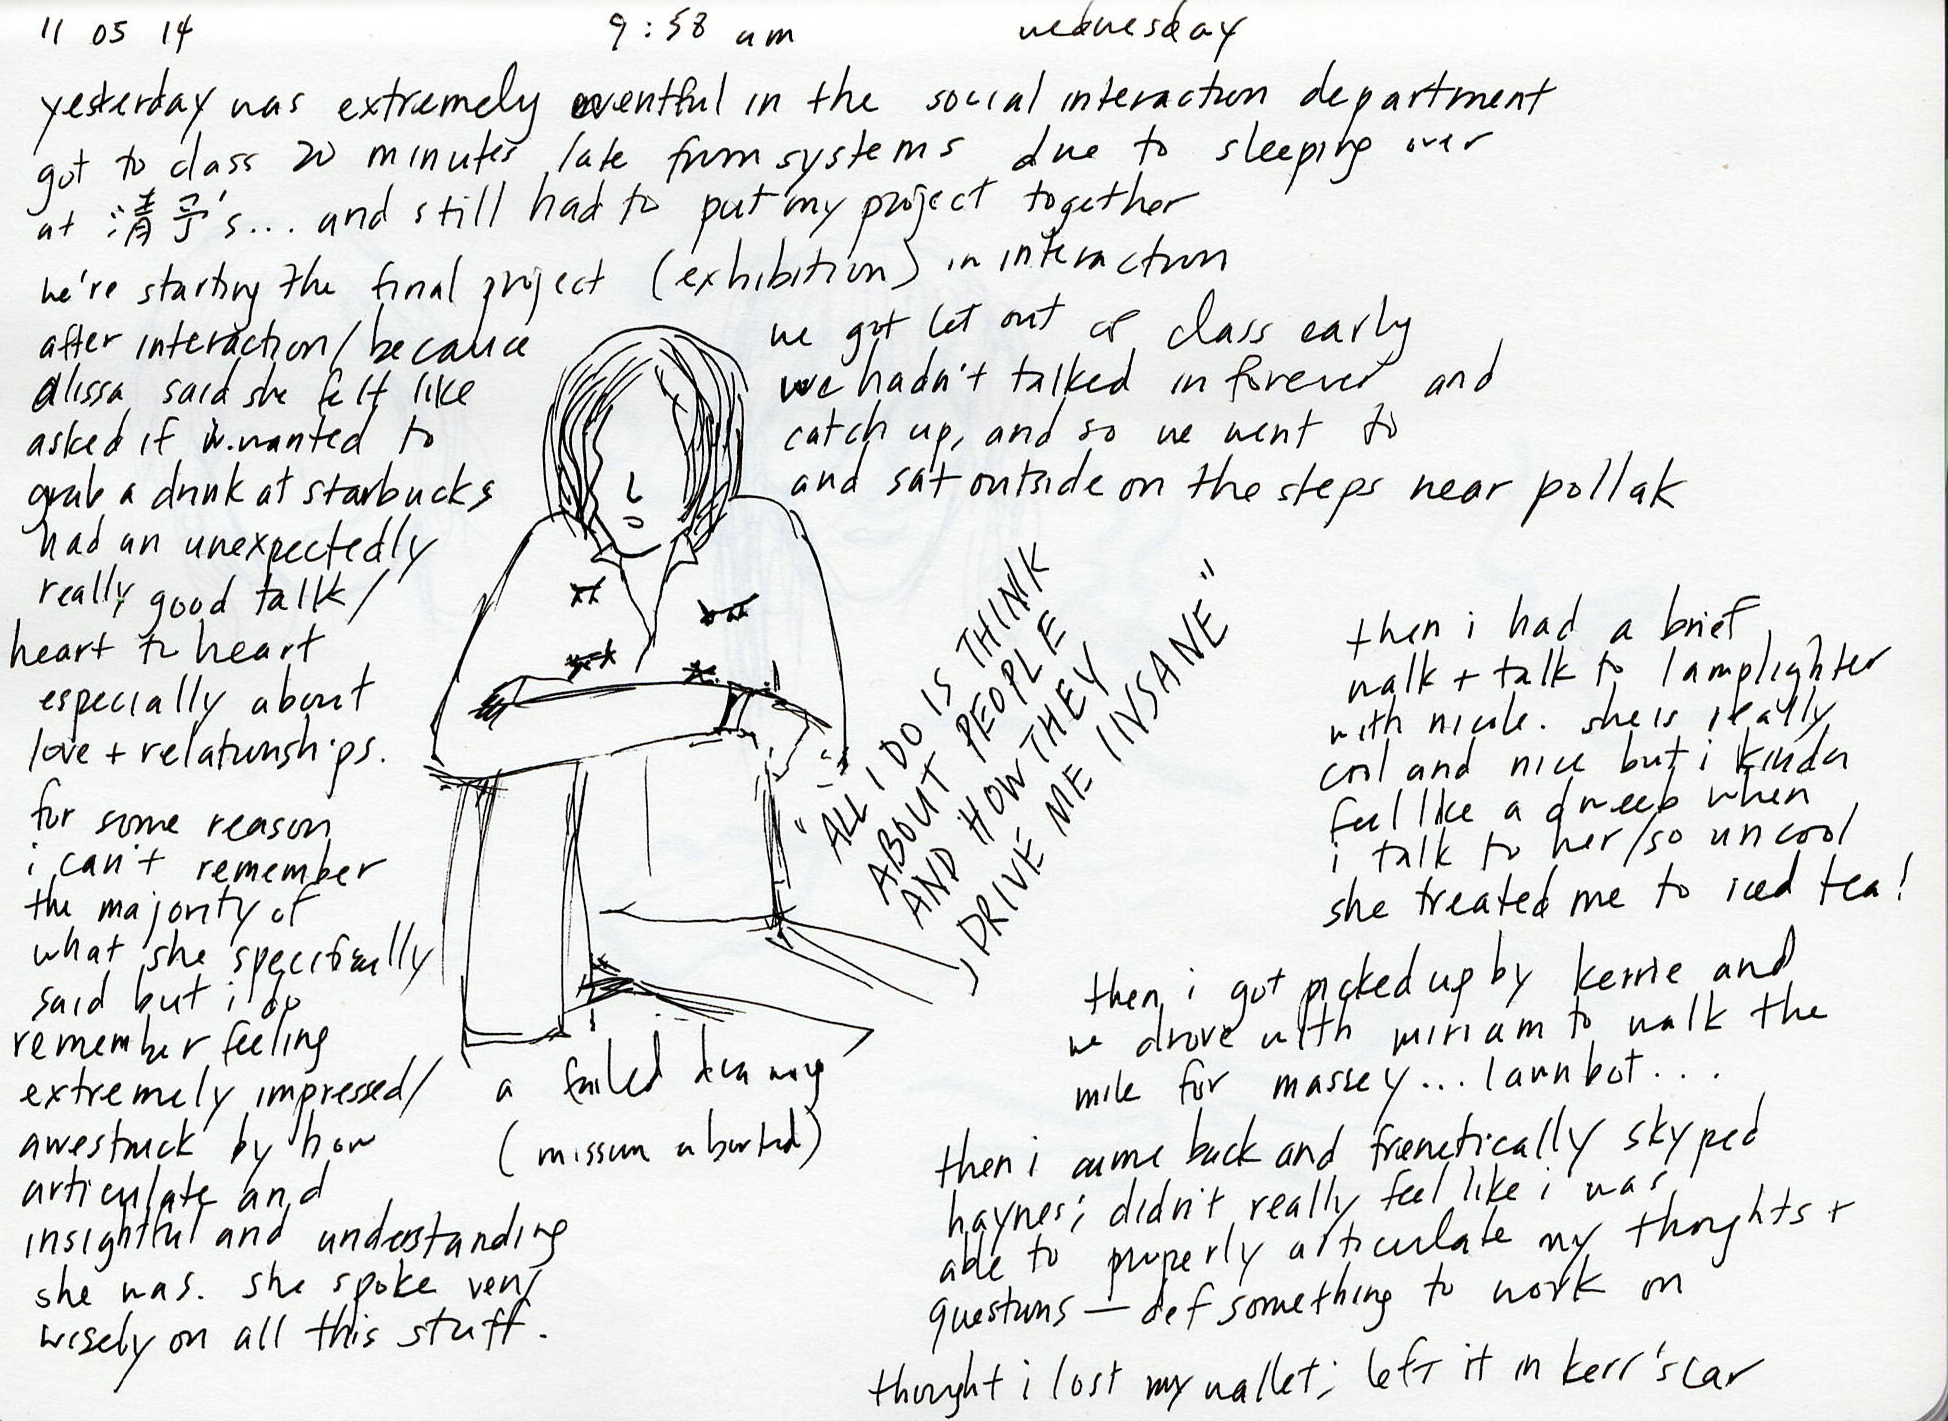 11 05 14 9:58 am wednesday
yesterday was extremely eventful in the social interaction department
got to class 20 minutes late from systems due to sleeping over
at 清予's... and still had to put my project together
we're starting the final project (exhibition) in interaction
after interaction/because we got let out of class early
alissa said she felt like we hadn't talked in forever and
asked if i wanted to catch up, and so we went to
grab a drink at starbucks and sat outside on the steps near pollak
had an unexpectedly
really good talk/
heart to heart
especially about
love + relationships.
for some reason
i can't remember
the majority of
what she specifically
said but i do
remember feeling
extremely impressed/
awestruck by how
articulate and
insightful and understanding
she was. she spoke very
wisely on all this stuff.
a failed drawing
(mission aborted)
"ALL I DO IS THINK
ABOUT PEOPLE
AND HOW THEY
DRIVE ME IINSANE"
then i had a brief
walk + talk to lamplighter
with nicole. she is really
cool and nice but i kinda
feel like a dweeb when
i talk to her/so uncool
she treated me to iced tea!
then i got picked up by kerrie and
we drove with miriam to walk the
mile for massey... lawnbot...
then i came back and frenetically skyped
haynes; didn't really feel like i was
able to properly articulate my thoughts +
questions — def something to work on
thought i lost my wallet; left it in kerr's car